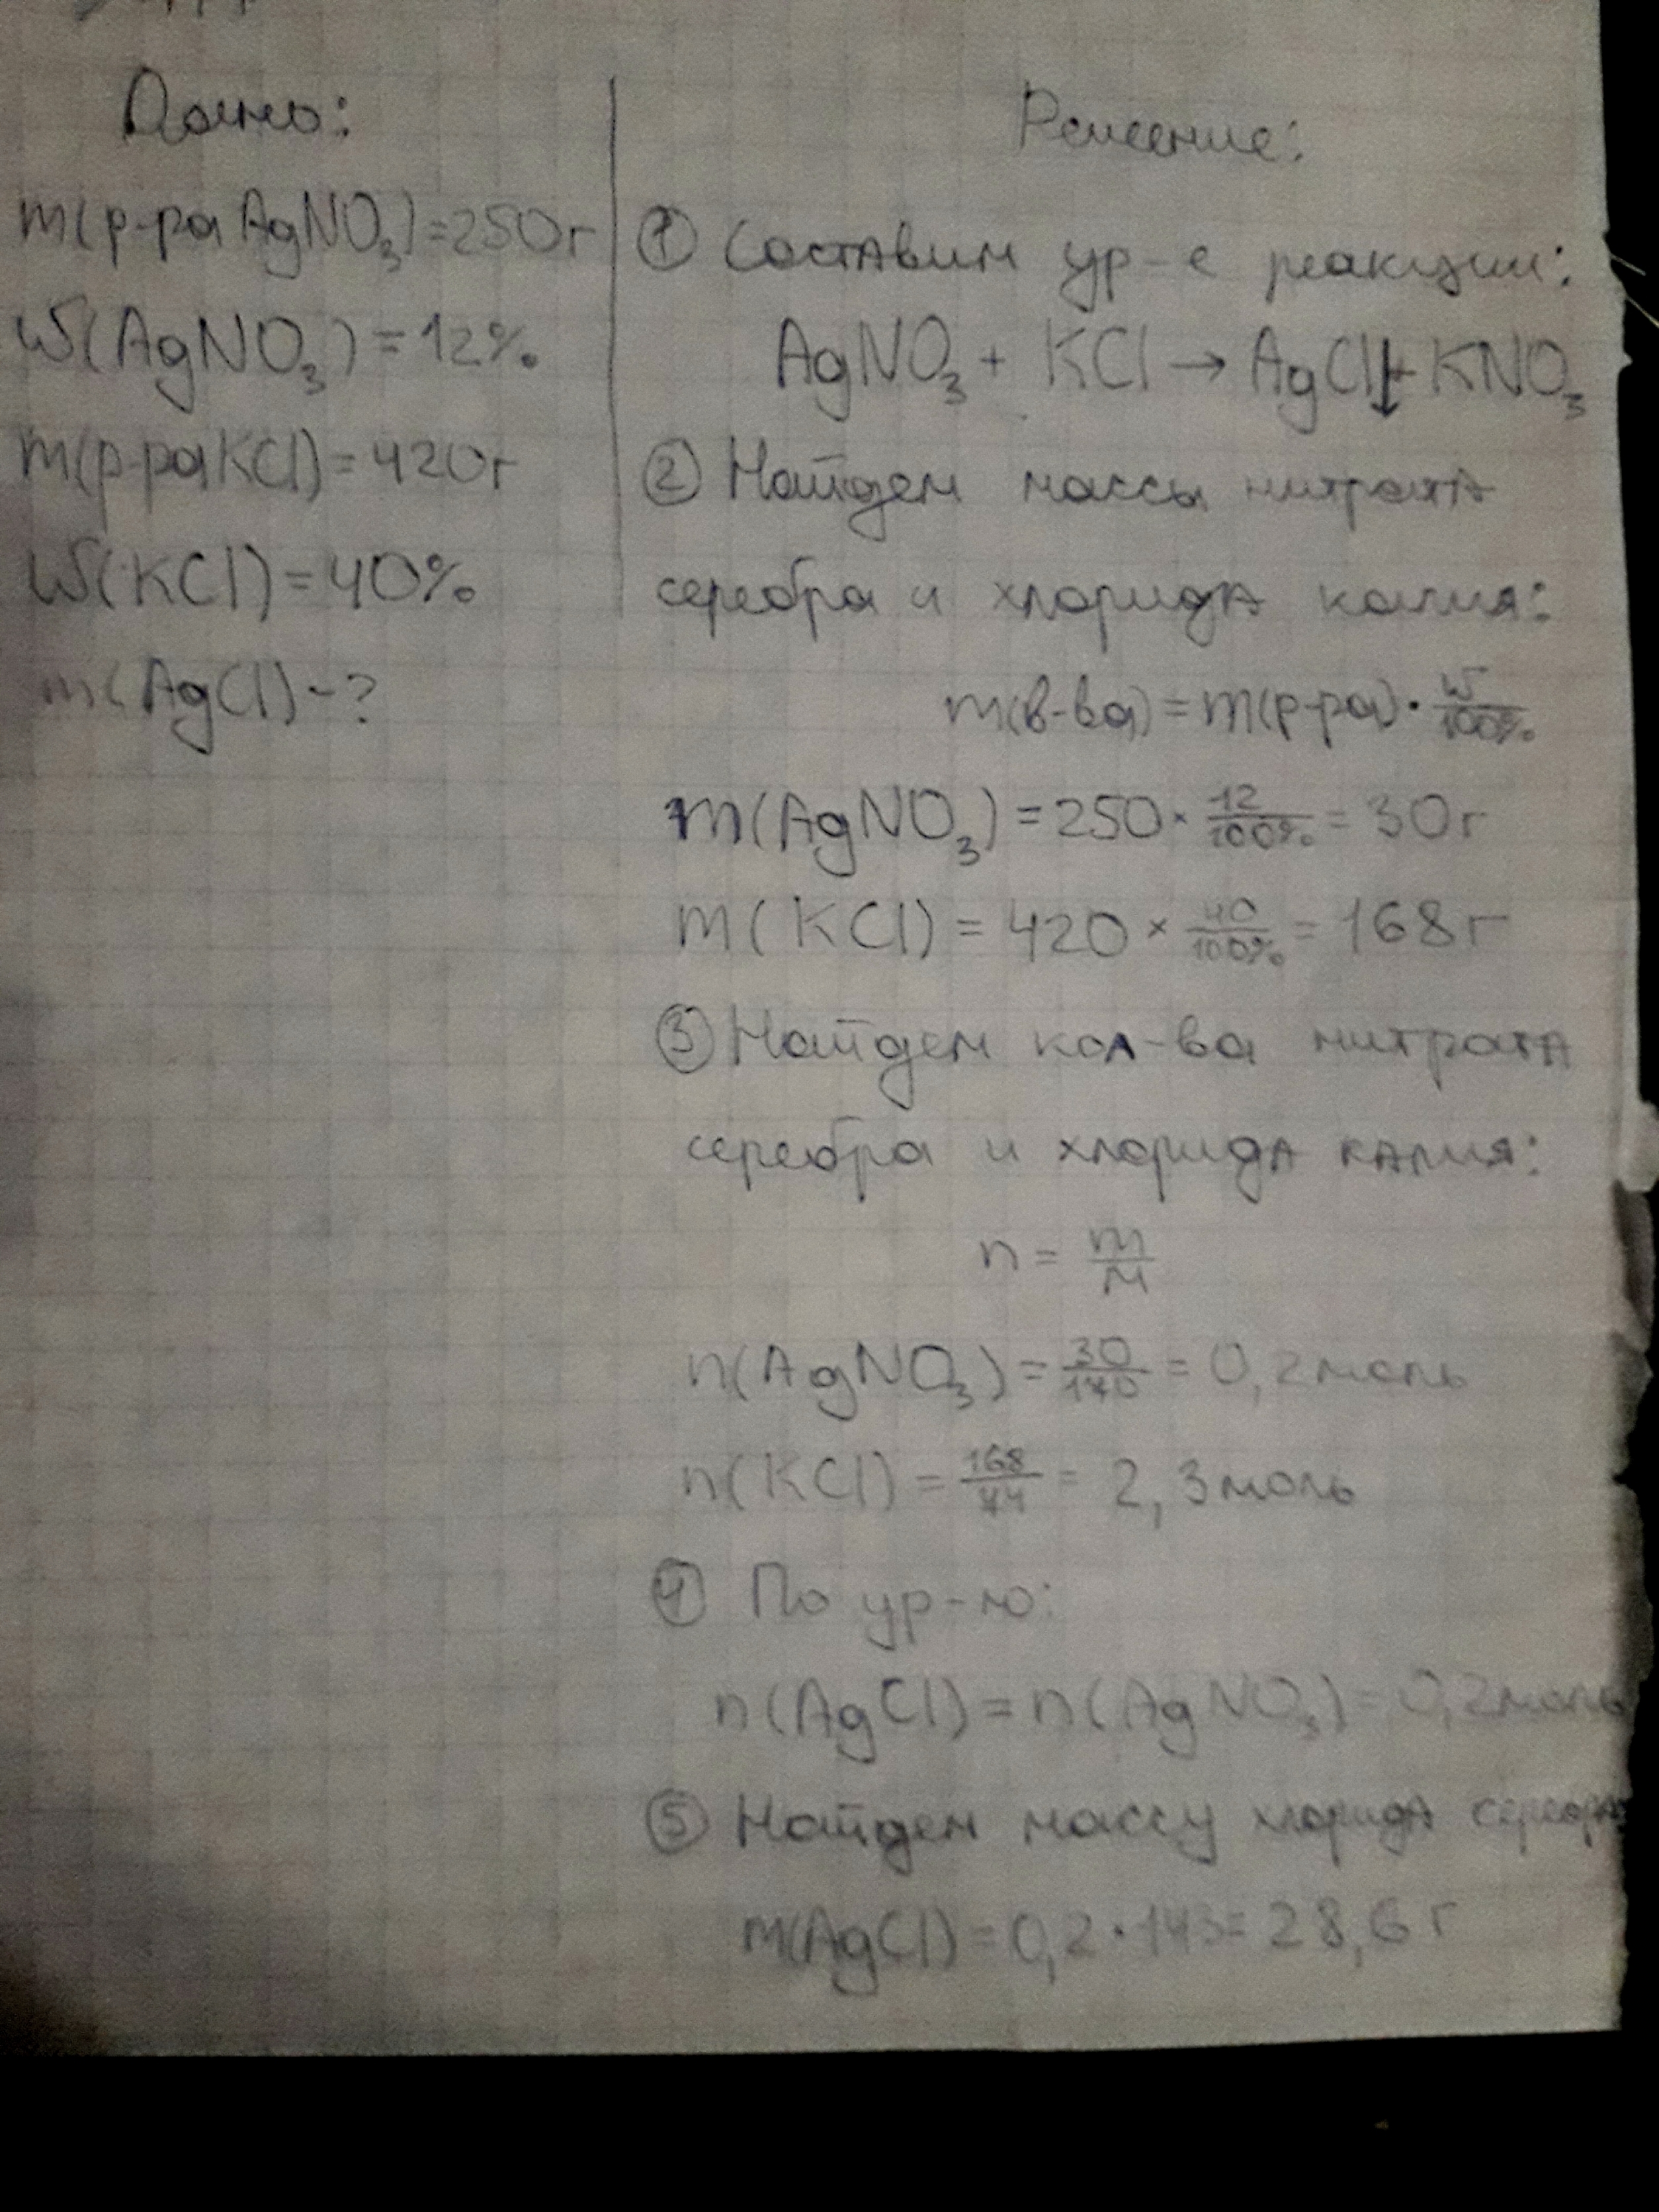 Дано:
m(р-ра AgNO₃)=250г
W(AgNO₃)=12%
m(р-ра KCl)=420г
W(KCl)=40%
m(AgCl)-?
Решение:
① Составим ур-е реакции:
AgNO₃ + KCl → AgCl↓+ KNO₃
② Найдем массы нитрата
серебра и хлорида калия:
m(в-ва) = m(р-ра) · W/100%
m(AgNO₃) = 250 × 12/100% = 30г
m(KCl) = 420 × 40/100% = 168г
③ Найдем кол-ва нитрата
серебра и хлорида калия:
n = m/M
n(AgNO₃) = 30/170 = 0,2моль
n(KCl) = 168/74 = 2,3моль
④ По ур-ю:
n(AgCl) = n(AgNO₃) = 0,2моль
⑤ Найдем массу хлорида серебра
m(AgCl) = 0,2 · 143 = 28,6 г